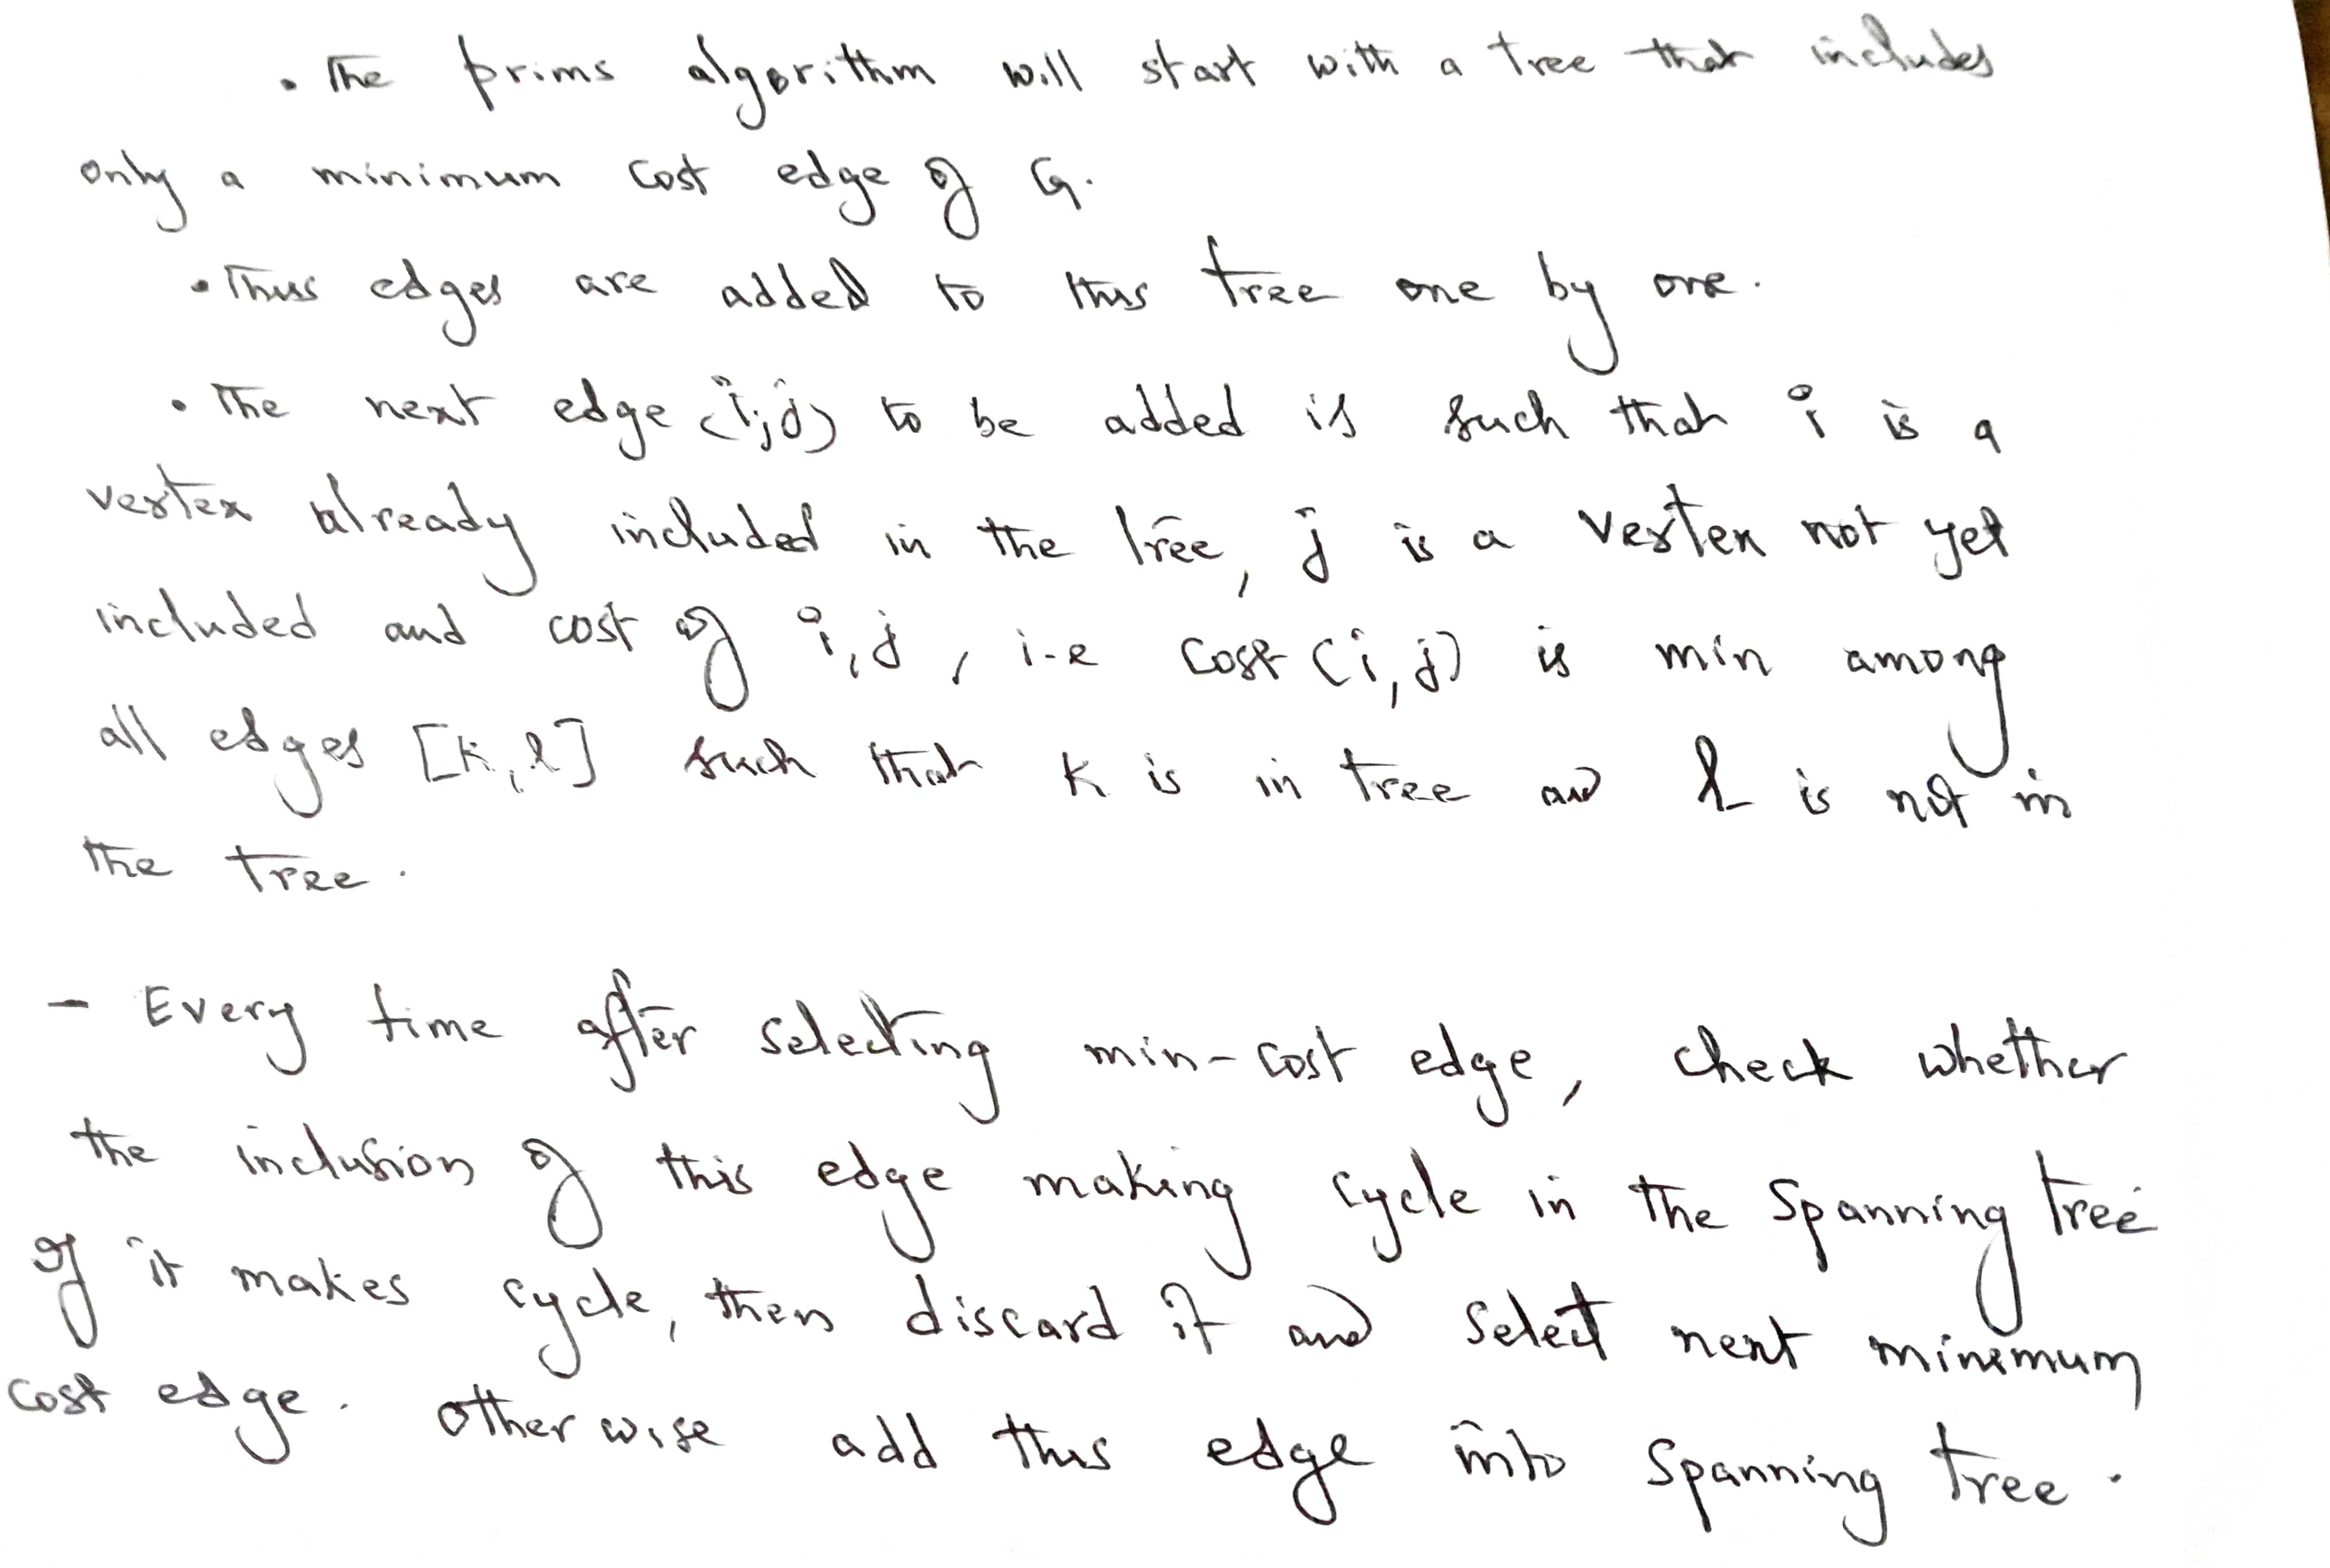 • The prims algorithm will start with a tree that includes
only a minimum cost edge of G.
• Thus edges are added to this tree one by one.
• The next edge (i,j) to be added is such that i is a
vertex already included in the tree, j is a vertex not yet
included and cost of i,j, i-e cost (i,j) is min among
all edges [k,l] such that k is in tree and l is not in
the tree.
- Every time after selecting min-cost edge, check whether
the inclusion of this edge making cycle in the spanning tree
If it makes cycle, then discard it and select next minimum
cost edge. otherwise add this edge into spanning tree.